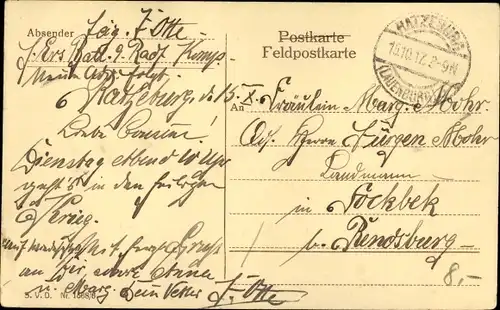 Absender Jäg. F. Otte
I. Ers. Batl. 9. Radf. Komp.
Neue Adr. folgt.
Ratzeburg, d. 15. X.
Liebe Cousine!
Dienstag Abend 10 Uhr
geht es in den heiligen
Krieg.
Gruß
an Dir,
u. Marg. Dein Vetter F. Otte
S. V. D. Nr. 1568/6
Postkarte
Feldpostkarte
RATZEBURG
15.10.17. 8-9N
(LAUENBURG)
An Fräulein Marg. Mohr
Adr. Herrn Jürgen Mohr
Landmann
in Fockbek
b. Rendsburg
8,-